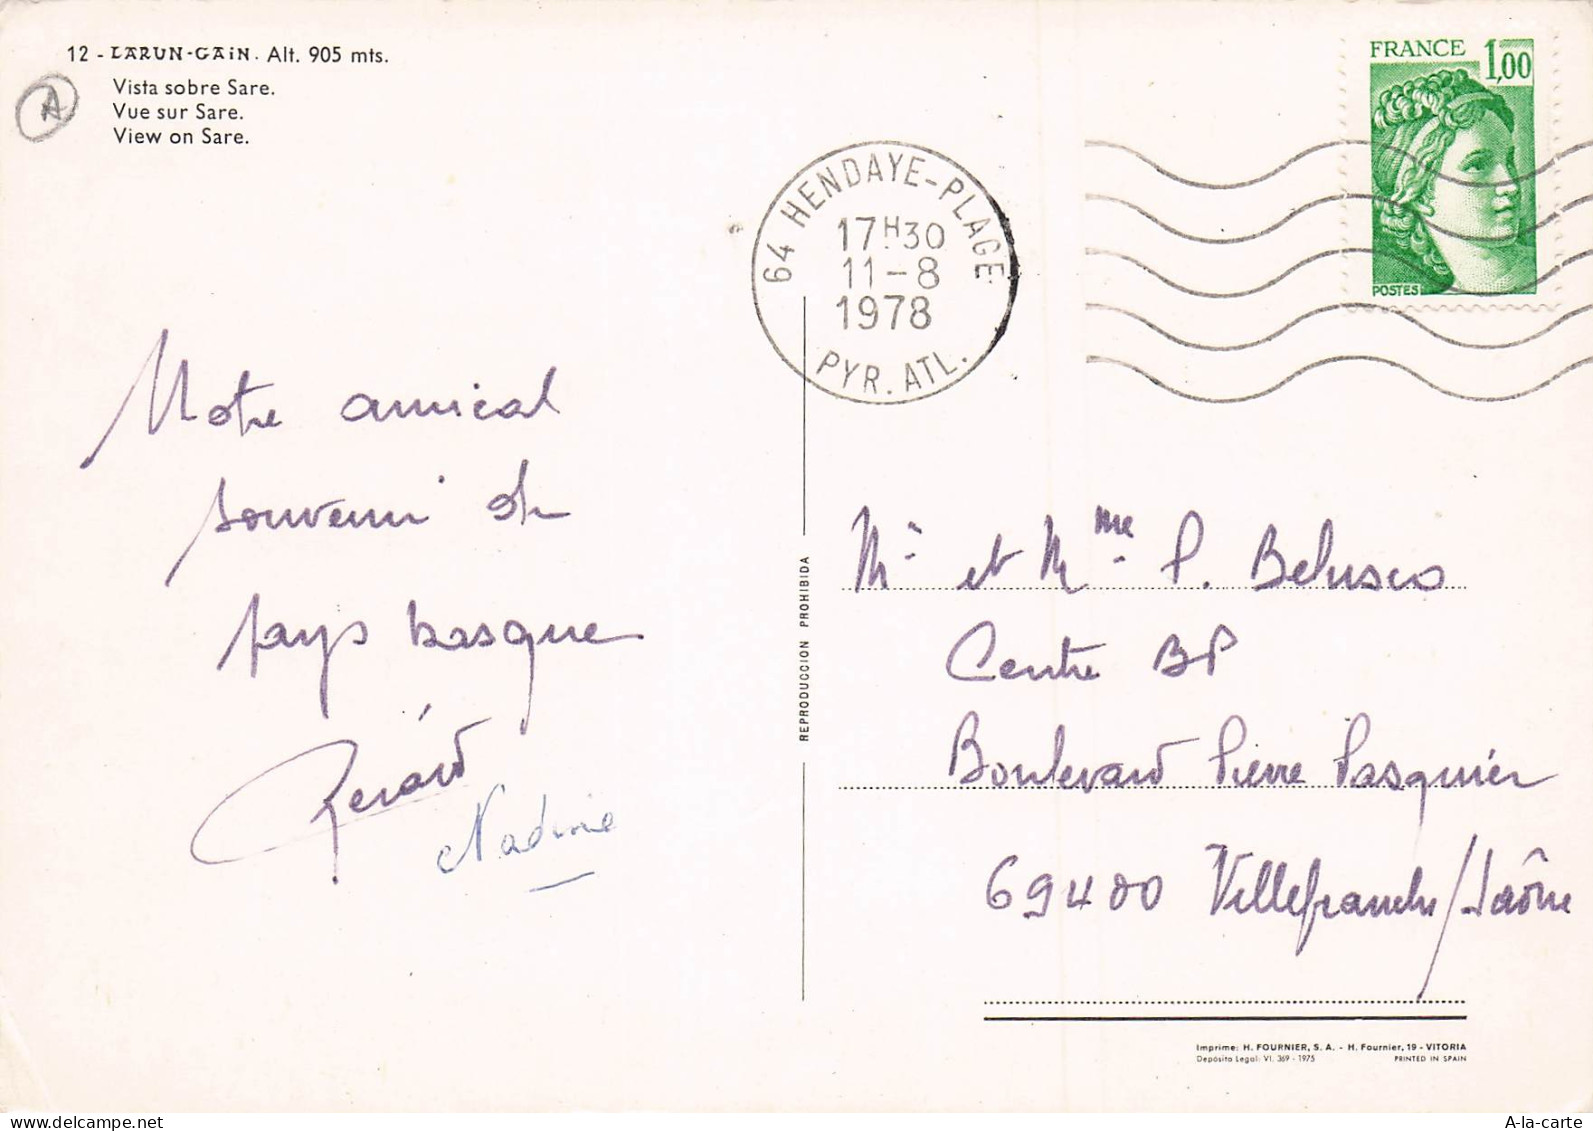 12 - LARUN-GAIN. Alt. 905 mts.
Vista sobre Sare.
Vue sur Sare.
View on Sare.
A
FRANCE 1,00
POSTES
64 HENDAYE-PLAGE
17H30
11-8
1978
PYR. ATL.
Notre amical
souvenir du
pays basque
Gérard
Nadine
REPRODUCCION PROHIBIDA
Mr et Mme P. Belusco
Centre BP
Boulevard Pierre Pasquier
69400 Villefranche/Saône
Imprime: H. FOURNIER, S. A. - H. Fournier, 19 - VITORIA
Depósito Legal: VI. 369 - 1975 PRINTED IN SPAIN
A-la-carte